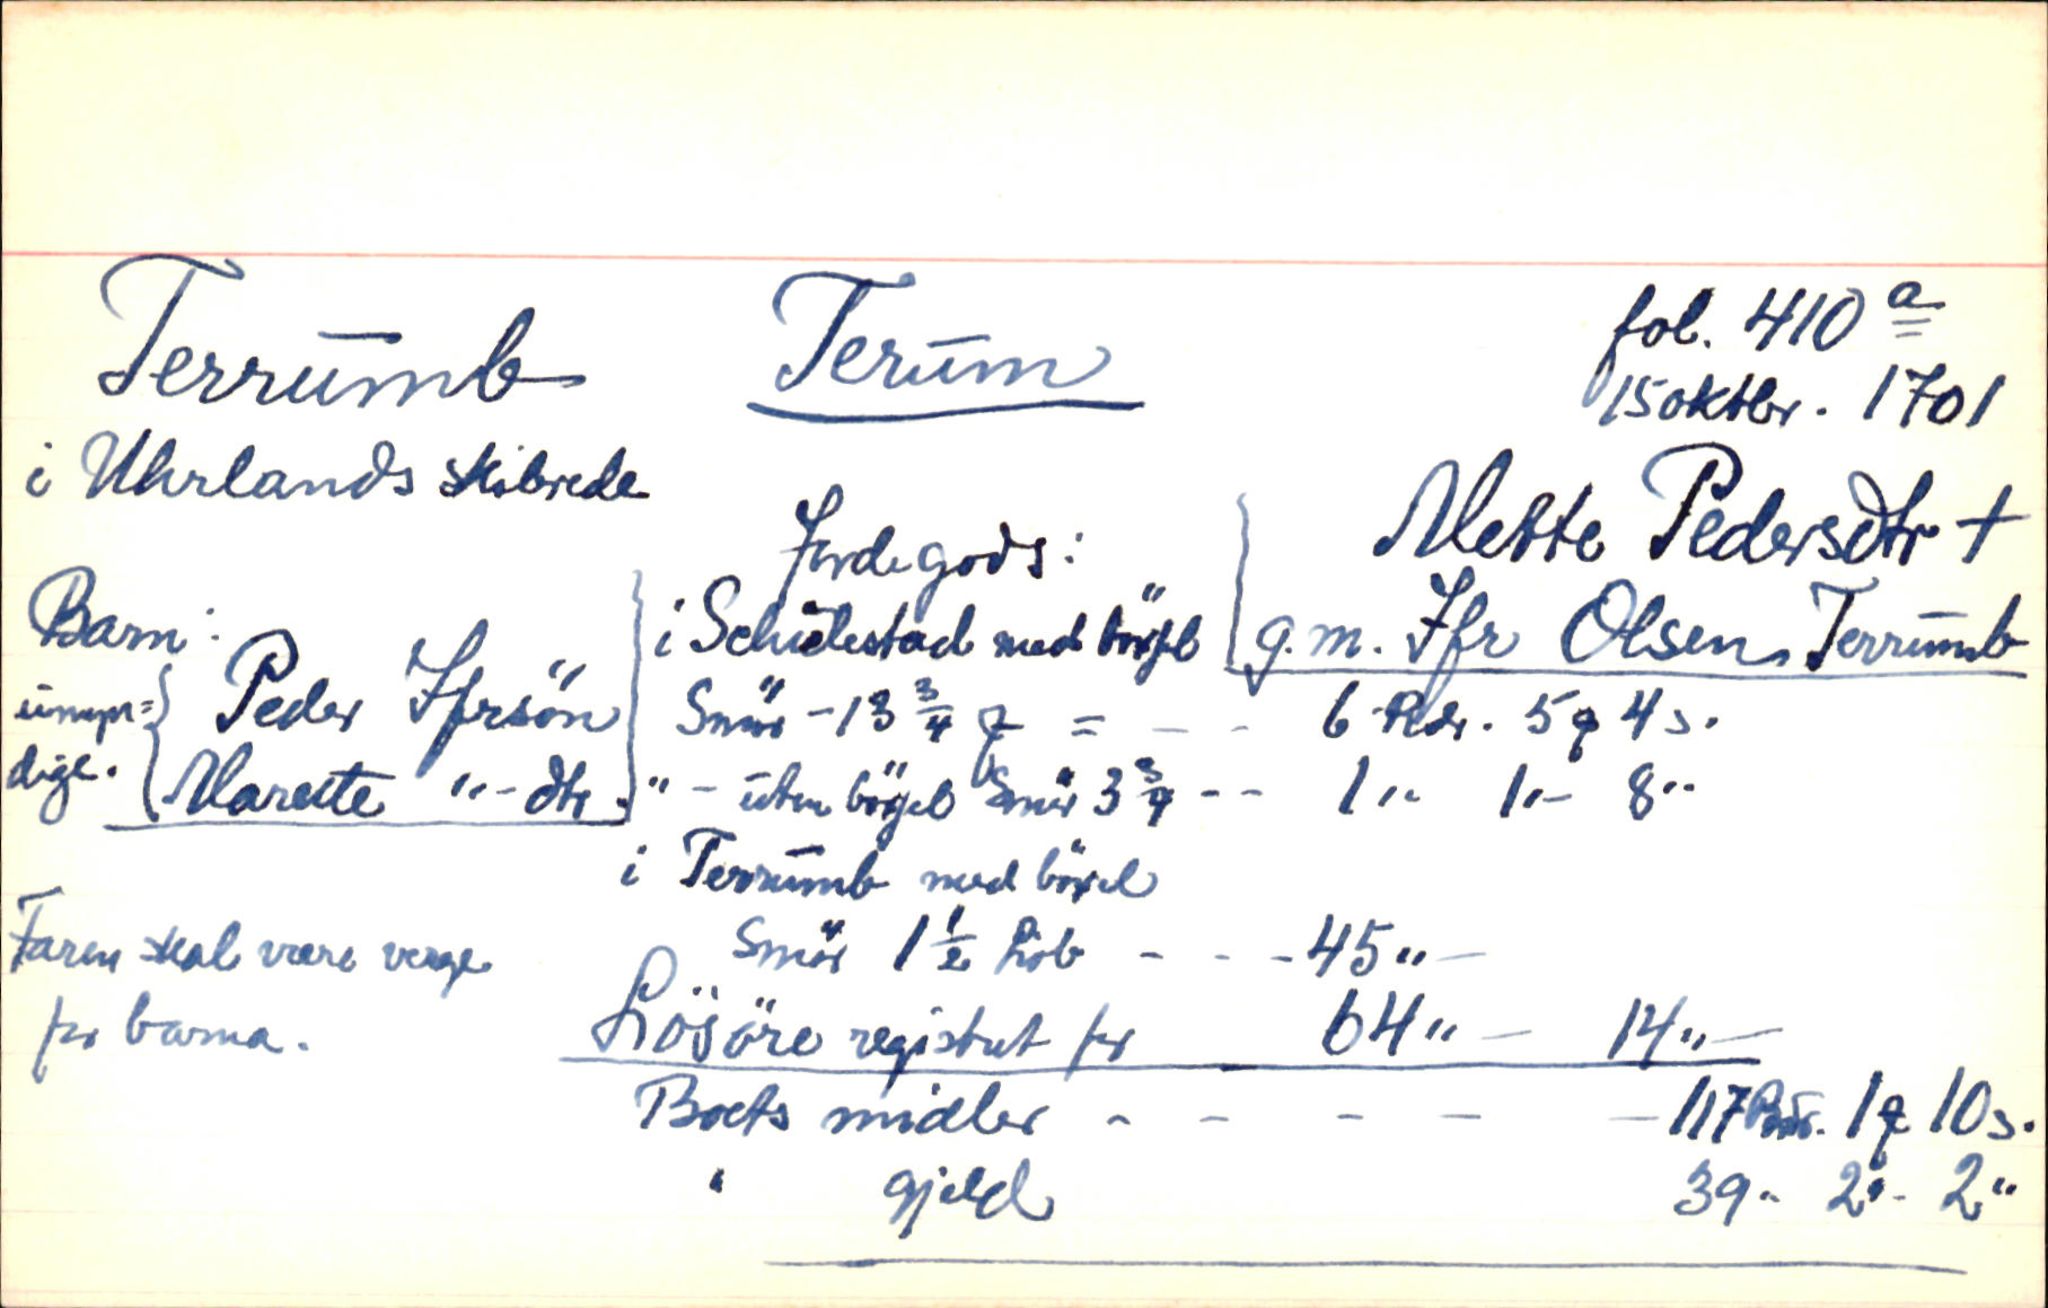 Terrumb Terum fol. 410 a
15 oktbr. 1701
i Uhrlands skibrede
Mette Pedersdtr +
g.m. Ifr Olsen Terrumb
Barn:
umyn=
dige.
Peder Ifrsön
Marete "-dtr.
Jordegods:
i Schielestad med böxel
Smör - 13 3/4 = - - 6 Rdr. 5 4 s.
" - uten böxel Smör 3 3/4 - - 1 " 1 "- 8 "
i Terrumb med böxel
Smör 1 1/2 Löb - - - 45 " -
Lösöre registrert for 64 " - 14 " -
Boets midler - - - - - 117 Rdr. 1 10 s.
" gjeld 39 " 2 "- 2 "
Faren skal være verge
for barna.